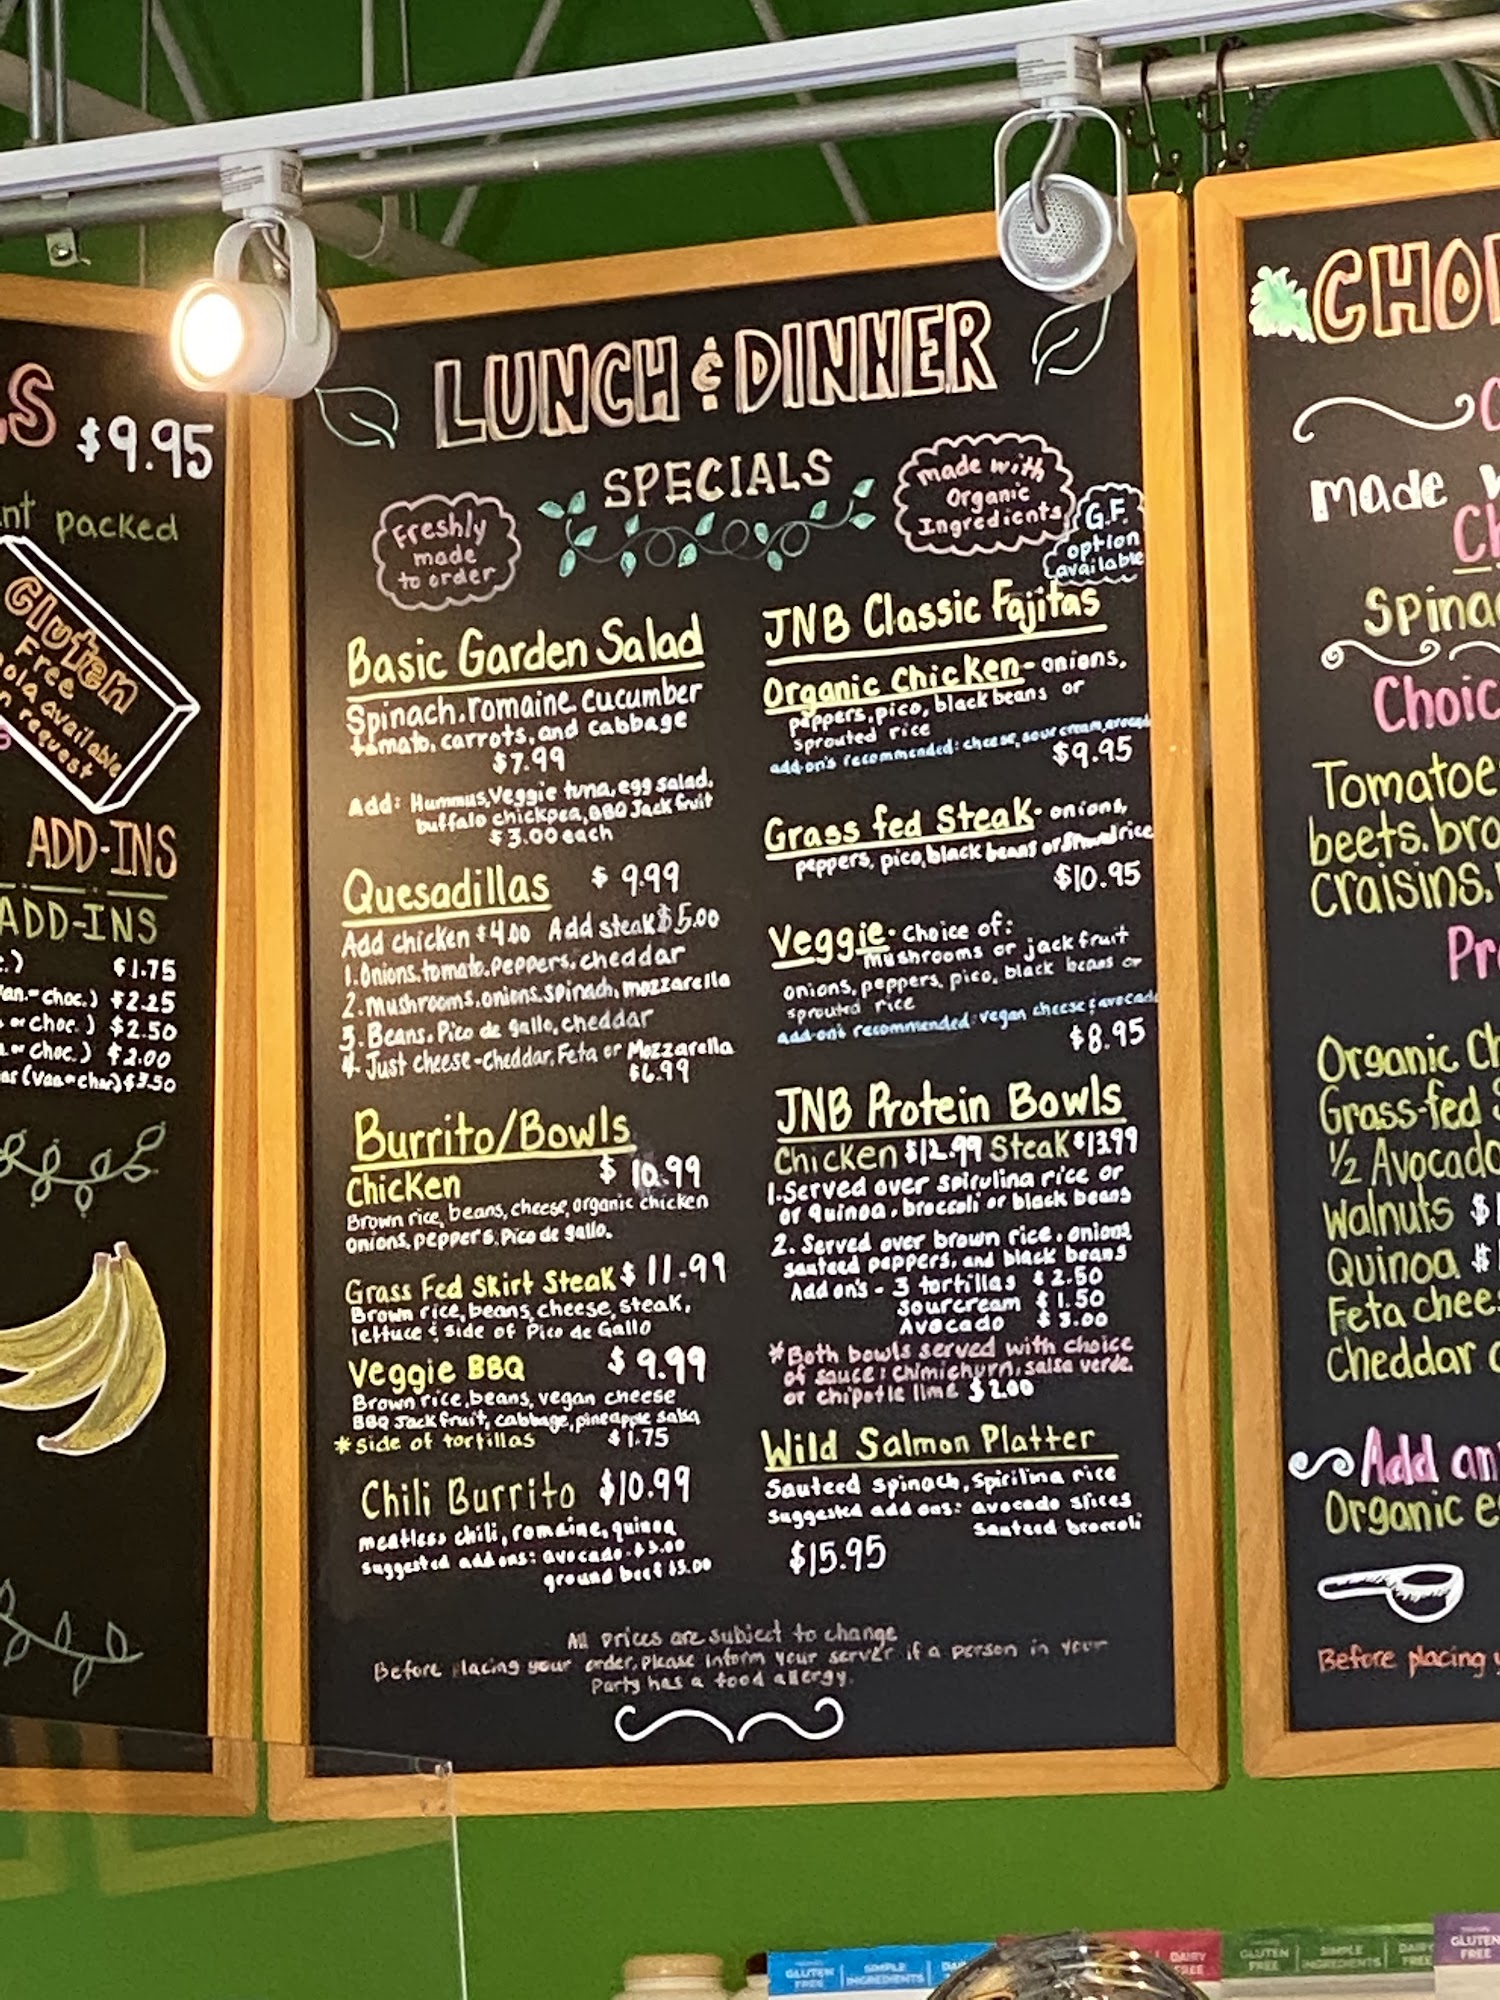 LS $9.95
nt packed
Gluten
Free
ola available
n request
ADD-INS
ADD-INS
$1.75
van.-choc.) $2.25
or choc.) $2.50
or choc.) $2.00
(Van or char) $3.50
LUNCH & DINNER
SPECIALS
Freshly
made
to order
made with
Organic
Ingredients
G.F.
option
available
Basic Garden Salad
Spinach, romaine, cucumber
tomato, carrots, and cabbage
$7.99
Add: Hummus, Veggie tuna, egg salad,
buffalo chickpea, BBQ Jack fruit
$3.00 each
Quesadillas $9.99
Add chicken $4.00 Add steak $5.00
1. Onions, tomato, peppers, cheddar
2. mushrooms, onions, spinach, mozzarella
3. Beans, Pico de gallo, cheddar
4. Just cheese - cheddar, Feta or Mozzarella
$6.99
Burrito/Bowls
Chicken $10.99
Brown rice, beans, cheese, organic chicken
onions, peppers, Pico de gallo.
Grass Fed Skirt Steak $11.99
Brown rice, beans, cheese, steak,
lettuce & side of Pico de Gallo
Veggie BBQ $9.99
Brown rice, beans, vegan cheese
BBQ Jack fruit, cabbage, pineapple salsa
*side of tortillas $1.75
Chili Burrito $10.99
meatless chili, romaine, quinoa
suggested add ons: avocado - $3.00
ground beef $3.00
JNB Classic Fajitas
Organic Chicken - onions,
peppers, pico, black beans or
sprouted rice
add-on's recommended: cheese, sour cream, avocad
$9.95
Grass fed Steak - onions,
peppers, pico, black beans or Sprouted rice
$10.95
Veggie - choice of:
mushrooms or jack fruit
onions, peppers, pico, black beans or
sprouted rice
add-on's recommended: vegan cheese & avocado
$8.95
JNB Protein Bowls
Chicken $12.99 Steak $13.99
1. Served over spirulina rice or
or quinoa, broccoli or black beans
2. Served over brown rice, onions,
sauteed peppers, and black beans
Add on's - 3 tortillas $2.50
sourcream $1.50
Avocado $3.00
*Both bowls served with choice
of sauce: Chimichurri, salsa verde,
or chipotle lime $2.00
Wild Salmon Platter
Sauteed spinach, Spirilina rice
Suggested add ons: avocado slices
sauteed broccoli
$15.95
All prices are subject to change
Before lacing your order, please inform your server if a person in your
Party has a food allergy.
CHO
made w
Ch
Spinac
Choic
Tomatoe
beets, bro
craisins,
Pr
Organic Ch
Grass-fed S
1/2 Avocado
walnuts $1
Quinoa $1
Feta chees
Cheddar c
Add an
Organic e
Before placing y
GLUTEN FREE
SIMPLE INGREDIENTS
DAIRY FREE
GLUTEN FREE
SIMPLE INGREDIENTS
DAIRY FREE
GLUTEN FREE